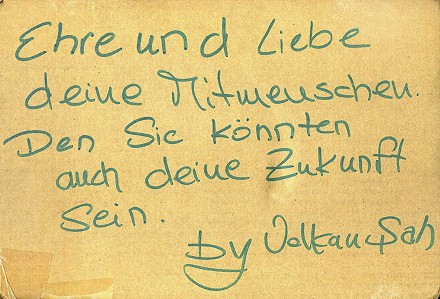 Ehre und Liebe
deine Mitmenschen.
Den Sie könnten
auch deine Zukunft
sein.
by Volkan